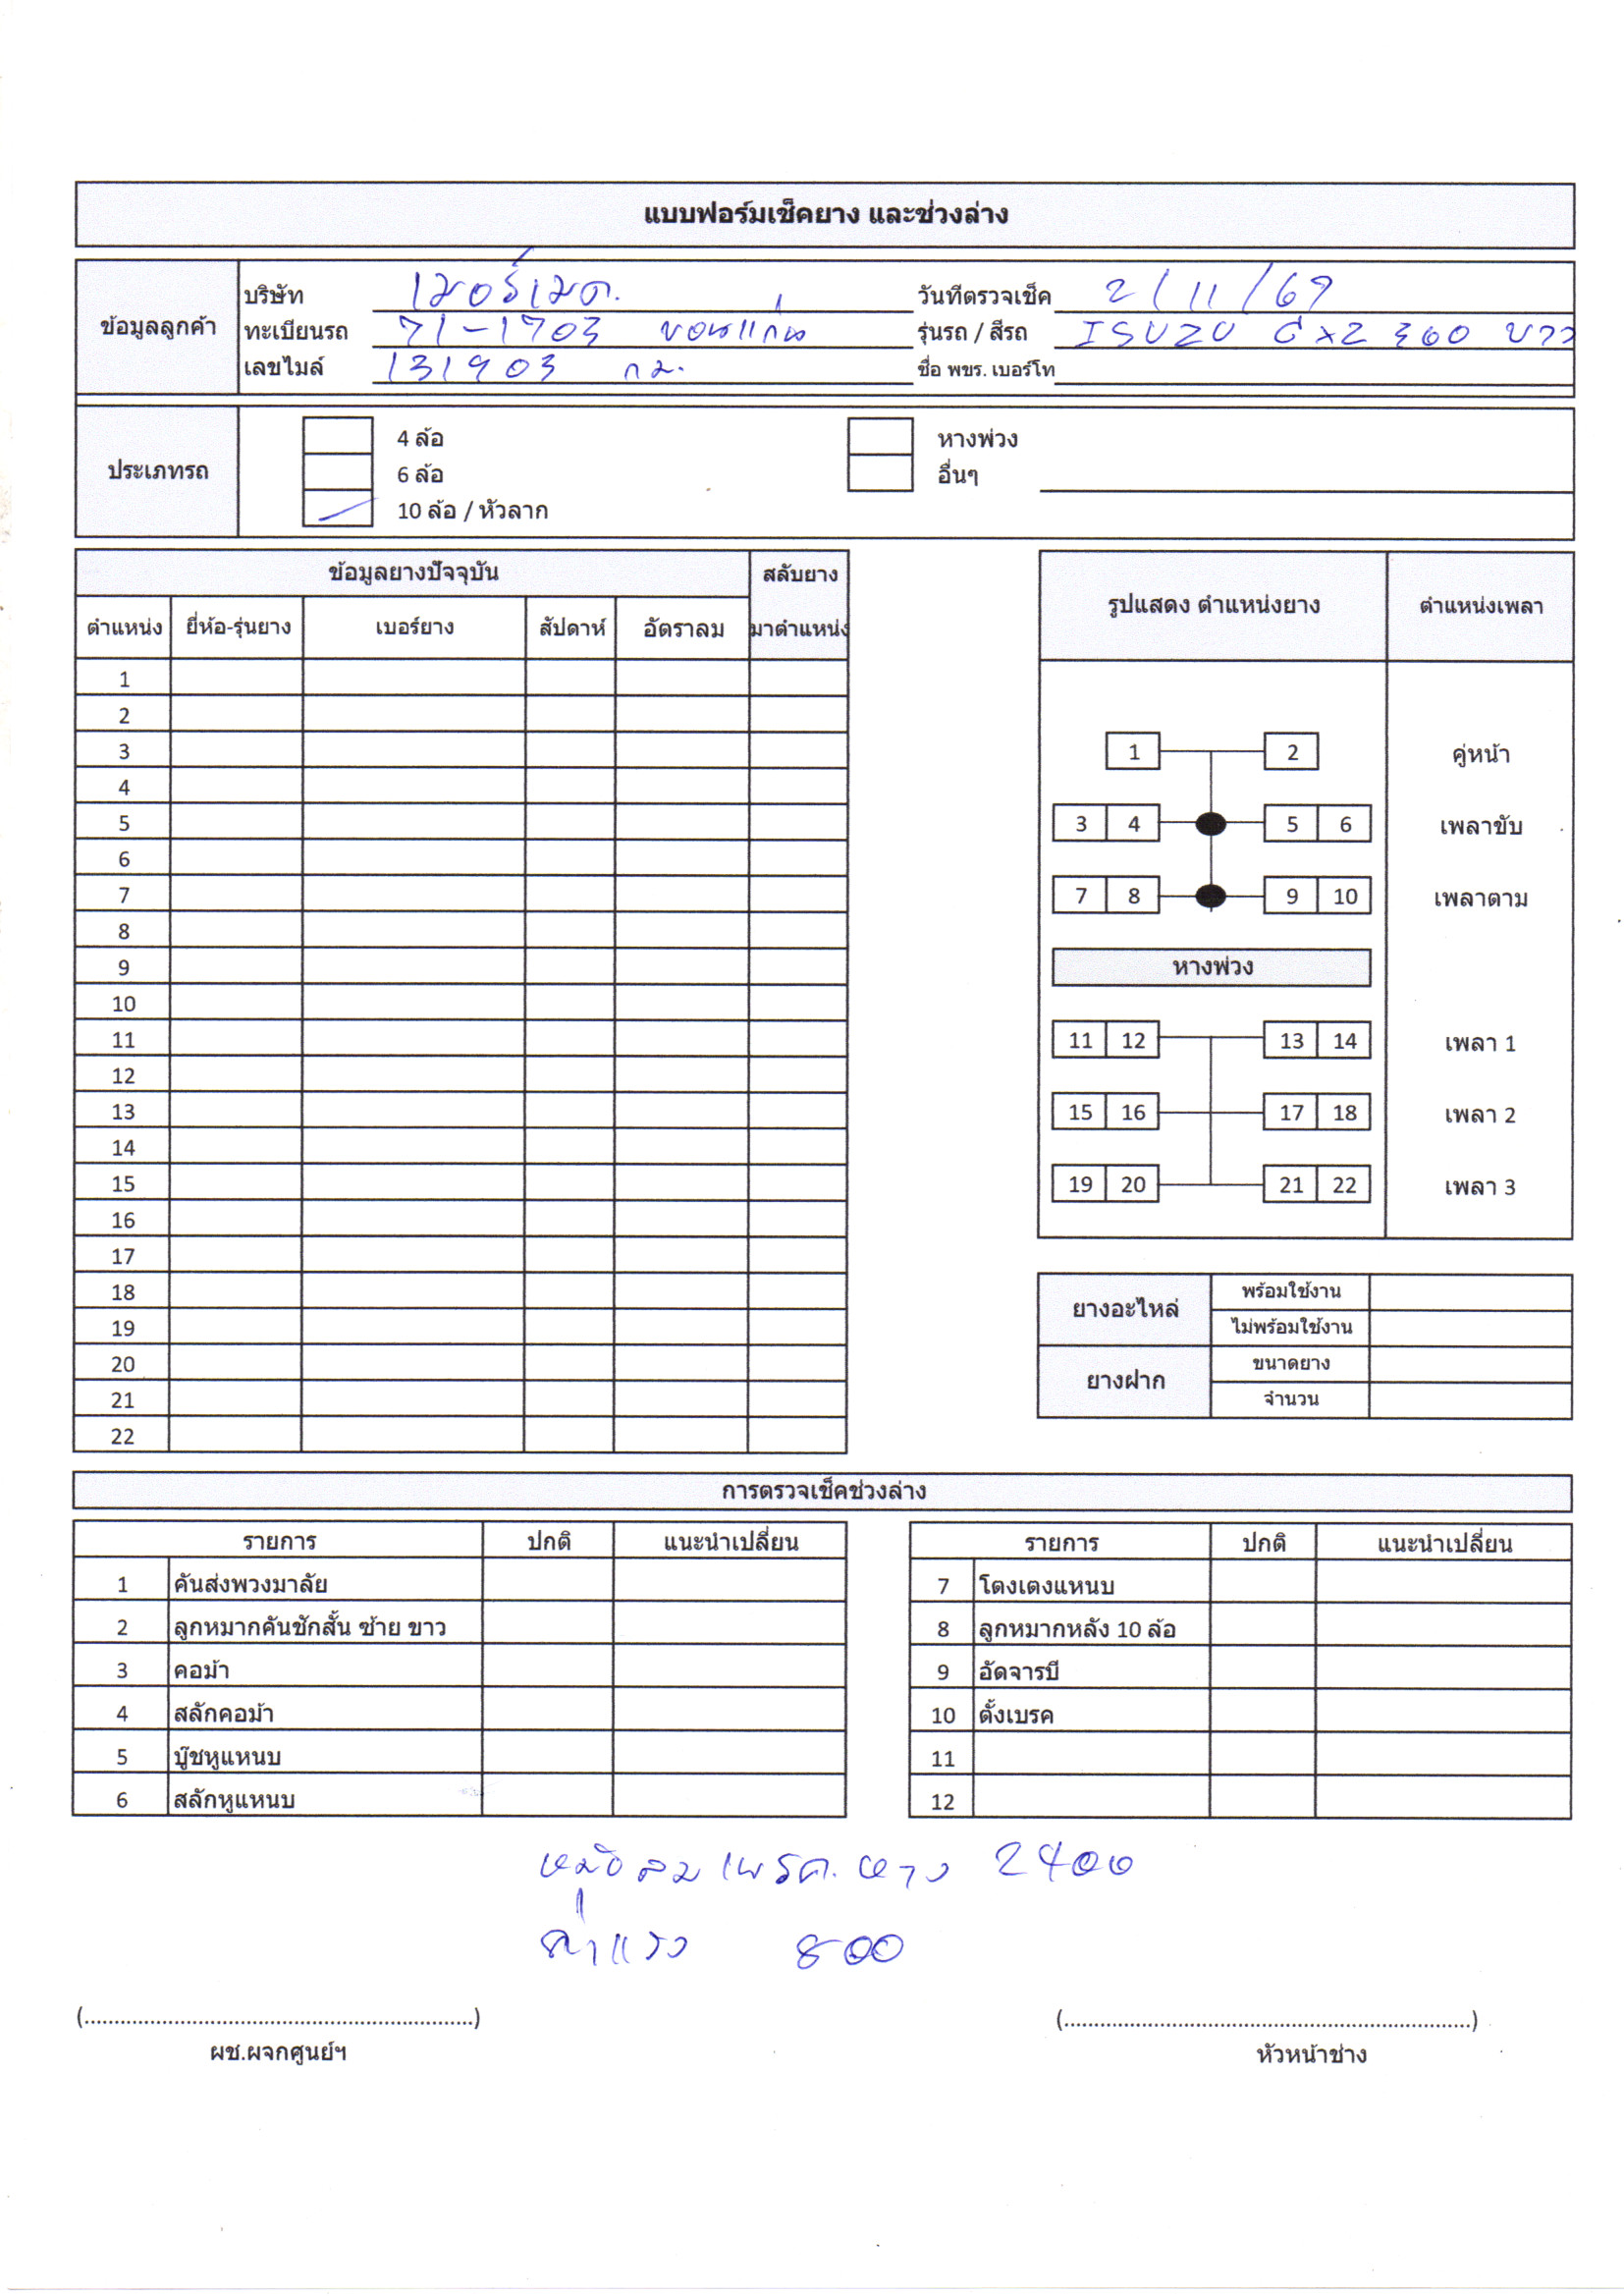 แบบฟอร์มเช็คยาง และช่วงล่าง
ข้อมูลลูกค้า
บริษัท เมอร์เมด. วันที่ตรวจเช็ค 2/11/69
ทะเบียนรถ 71-1703 ขอนแก่น รุ่นรถ / สีรถ ISUZU GXZ 360 ขาว
เลขไมล์ 131903 กม. ชื่อ พขร. เบอร์โท
ประเภทรถ
4 ล้อ หางพ่วง
6 ล้อ อื่นๆ
10 ล้อ / หัวลาก
ข้อมูลยางปัจจุบัน สลับยาง
ตำแหน่ง ยี่ห้อ-รุ่นยาง เบอร์ยาง สัปดาห์ อัตราลม มาตำแหน่ง
1
2
3
4
5
6
7
8
9
10
11
12
13
14
15
16
17
18
19
20
21
22
รูปแสดง ตำแหน่งยาง ตำแหน่งเพลา
1 2 คู่หน้า
3 4 5 6 เพลาขับ
7 8 9 10 เพลาตาม
หางพ่วง
11 12 13 14 เพลา 1
15 16 17 18 เพลา 2
19 20 21 22 เพลา 3
ยางอะไหล่ พร้อมใช้งาน
ไม่พร้อมใช้งาน
ยางฝาก ขนาดยาง
จำนวน
การตรวจเช็คช่วงล่าง
รายการ ปกติ แนะนำเปลี่ยน
1 คันส่งพวงมาลัย
2 ลูกหมากคันชักสั้น ซ้าย ขาว
3 คอม้า
4 สลักคอม้า
5 บู๊ชหูแหนบ
6 สลักหูแหนบ
รายการ ปกติ แนะนำเปลี่ยน
7 โตงเตงแหนบ
8 ลูกหมากหลัง 10 ล้อ
9 อัดจารบี
10 ตั้งเบรค
11
12
หม้อลมเบรค.หาง 2400
ค่าแรง 800
(..................................................................) (.....................................................................)
ผช.ผจกศูนย์ฯ หัวหน้าช่าง